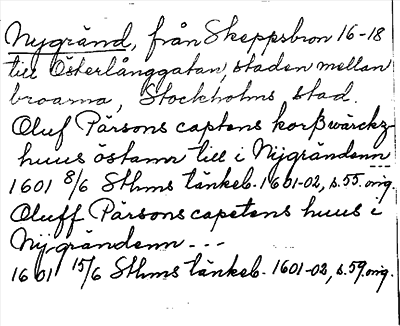 Nygränd, från Skeppsbron 16-18
till Österlånggatan, staden mellan
broarna, Stockholms stad.
Oluf Pärsons captens korßwärckz-
huus östann till i Nijgrändenn
1601 8/6 Sthms tänkeb. 1601-02, s.55. orig.
Oluff Pärsons capetens huus i
Nijgrändenn - - -
1601 15/6 Sthms tänkeb. 1601-02, s.59. orig.